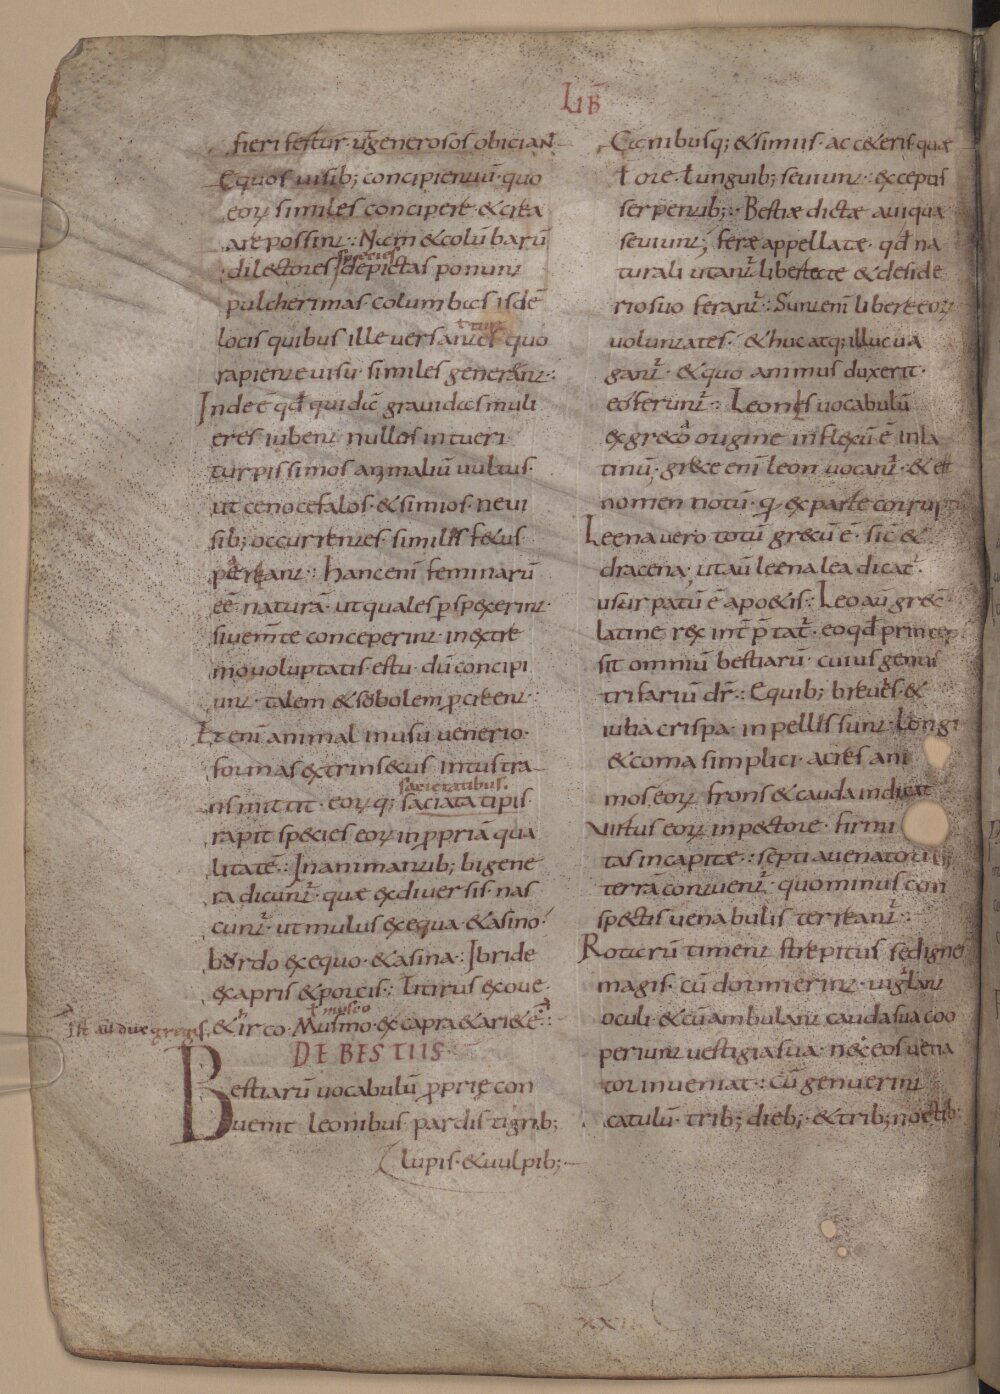 LIB̄
fieri fertur· ut̄ generosos obician̄t
Equos uisib; concipientiū· quo
eoꝝ similes concipere· & crea
are possint:· Nam & colūbarū
species
·dilectores depictas ponunt
pulcherimas columbas isdē
ł tur
locis quibus ille uersantes quo
rapiente uisu· similes generant:·
Inde ē qđ quidē grauidas muli
eres iubent nullos intueri
turpissimos animaliū uultus·
ut cenocefalos· & simios· ne ui
sib; occurrentes· similes fetus
pariant:· Hanc enī feminarū
eē naturā· ut quales ꝑspexerint·
siue mēte conceperint· in extre
mo uoluptatis· estu· dū concipi
unt· talem & sobolem ꝓcreent:·
Et enī animal in usu uenerio·
formas extrinsecus intus tra
sacietatibus·
nsmittit· eoꝝq; saciata tipis·
rapit species eoꝝ in ꝓpriā qua
litatē:· In animantib; bigene
ra dicunt̄· quæ ex diuersis nas
cunt̄· ut mulus ex equa· & asino·
burdo ex equo· & asina:· Ibride
ex apris & porcis:· Titirus ex oue·
ł musco
Est aū dux gregis· & irco· Musmo· ex capra & ariete:·
DE BESTIIS·
Bestiarū uocabulū ꝓprie con
uenit leonibus· pardis· tigrib;
lupis· & uulpib;
Canibusq; & simiis· ac ceteris· quæ
ł ore· ł unguib; seuiunt:· exceptis
serpentib;:· Bestiæ dictæ a ui qua
seuiunt; feræ appellate· qđ na
turali utant̄ libertate & deside
rio suo ferant̄:· Sunt enī libere eoꝝ
uoluntates· & huc atq; illuc ua
gant̄· & quo animus duxerit·
eo ferunt̄:· Leonis uocabulū
ex greco origine inflexū ē in la
tinū· grece enī leon uocant̄· & est
nomen notū· q̄ ex parte corrupt
Leena uero totū grecū ē· sic̄ &
dracena· ut aū leena lea dicat̄·
usurpatū ē a poetis:· Leo aū grec̄·
latine rex int̄ p̄tat̄· eo qđ princep
sit omniū bestiarū· cuius genus
trifariū dr̄:· E quib; breues· &
iuba crispa· inpelles sunt· Longi
& coma simplici· acres ani
mos eoꝝ frons & cauda indicat
Virtus eoꝝ in pectore· firmi
tas in capite:· septi a uenatorib;
terrā contuent̄· quo minus con
spectis uenabulis terreant̄:·
Rotarū timent strepitus sed ignes
magis· cū dormierint· uigilant
oculi· & cū ambulant cauda sua coo
periunt uestigia sua· ne eos uena
tor inueniat:· Cū genuerint
catulū· trib; dieb;· & trib; noctib;
XXII